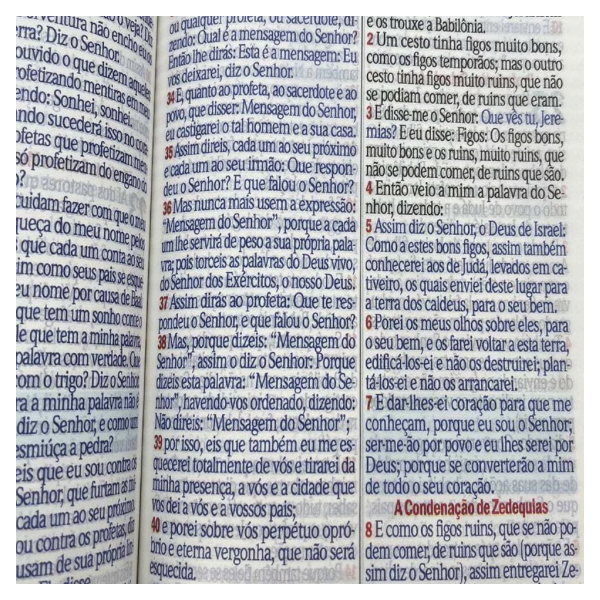 ventura não encho eu os
erra? Diz o Senhor.
ouvido o que dizem aqueles
profetizando mentiras em meu
endo: Sonhei, sonhei.
ando sucederá isso no cora-
ofetas que profetizam men-
só profetizam do engano do
o?
cuidam fazer com que o meu
queça do meu nome pelos
que cada um conta ao seu
im como seus pais se esque-
eu nome por causa de Baal.
que tem um sonho conte o
e que tem a minha palavra,
palavra com verdade. Que
om o trigo? Diz o Senhor.
ra a minha palavra não é
diz o Senhor, e como um
esmiúça a pedra?
eis que eu sou contra os
Senhor, que furtam as mi-
cada um ao seu próximo.
ou contra os profetas, diz
usam de sua própria lín-
Ele disse
ou qualquer profeta, ou sacerdote, di-
zendo: Qual é a mensagem do Senhor?
Então lhe dirás: Esta é a mensagem: Eu
vos deixarei, diz o Senhor.
34 E, quanto ao profeta, ao sacerdote e ao
povo, que disser: Mensagem do Senhor,
eu castigarei o tal homem e a sua casa.
35 Assim direis, cada um ao seu próximo
e cada um ao seu irmão: Que respon-
deu o Senhor? E que falou o Senhor?
36 Mas nunca mais usem a expressão:
“Mensagem do Senhor”, porque a cada
um lhe servirá de peso a sua própria pala-
vra; pois torceis as palavras do Deus vivo,
do Senhor dos Exércitos, o nosso Deus.
37 Assim dirás ao profeta: Que te res-
pondeu o Senhor, e que falou o Senhor?
38 Mas, porque dizeis: “Mensagem do
Senhor”, assim o diz o Senhor: Porque
dizeis esta palavra: “Mensagem do Se-
nhor”, havendo-vos ordenado, dizendo:
Não direis: “Mensagem do Senhor”;
39 por isso, eis que também eu me es-
quecerei totalmente de vós e tirarei da
minha presença, a vós e a cidade que
vos dei a vós e a vossos pais;
40 e porei sobre vós perpétuo opró-
brio e eterna vergonha, que não será
esquecida.
e os trouxe a Babilônia.
2 Um cesto tinha figos muito bons,
como os figos temporãos; mas o outro
cesto tinha figos muito ruins, que não
se podiam comer, de ruins que eram.
3 E disse-me o Senhor: Que vês tu, Jere-
mias? E eu disse: Figos: Os figos bons,
muito bons e os ruins, muito ruins, que
não se podem comer, de ruins que são.
4 Então veio a mim a palavra do Se-
nhor, dizendo:
5 Assim diz o Senhor, o Deus de Israel:
Como a estes bons figos, assim também
conhecerei aos de Judá, levados em ca-
tiveiro, os quais enviei deste lugar para
a terra dos caldeus, para o seu bem.
6 Porei os meus olhos sobre eles, para
o seu bem, e os farei voltar a esta terra,
edificá-los-ei e não os destruirei; plan-
tá-los-ei e não os arrancarei.
7 E dar-lhes-ei coração para que me
conheçam, porque eu sou o Senhor;
ser-me-ão por povo e eu lhes serei por
Deus; porque se converterão a mim
de todo o seu coração.
A Condenação de Zedequias
8 E como os figos ruins, que se não po-
dem comer, de ruins que são (porque as-
sim diz o Senhor), assim entregarei Ze-